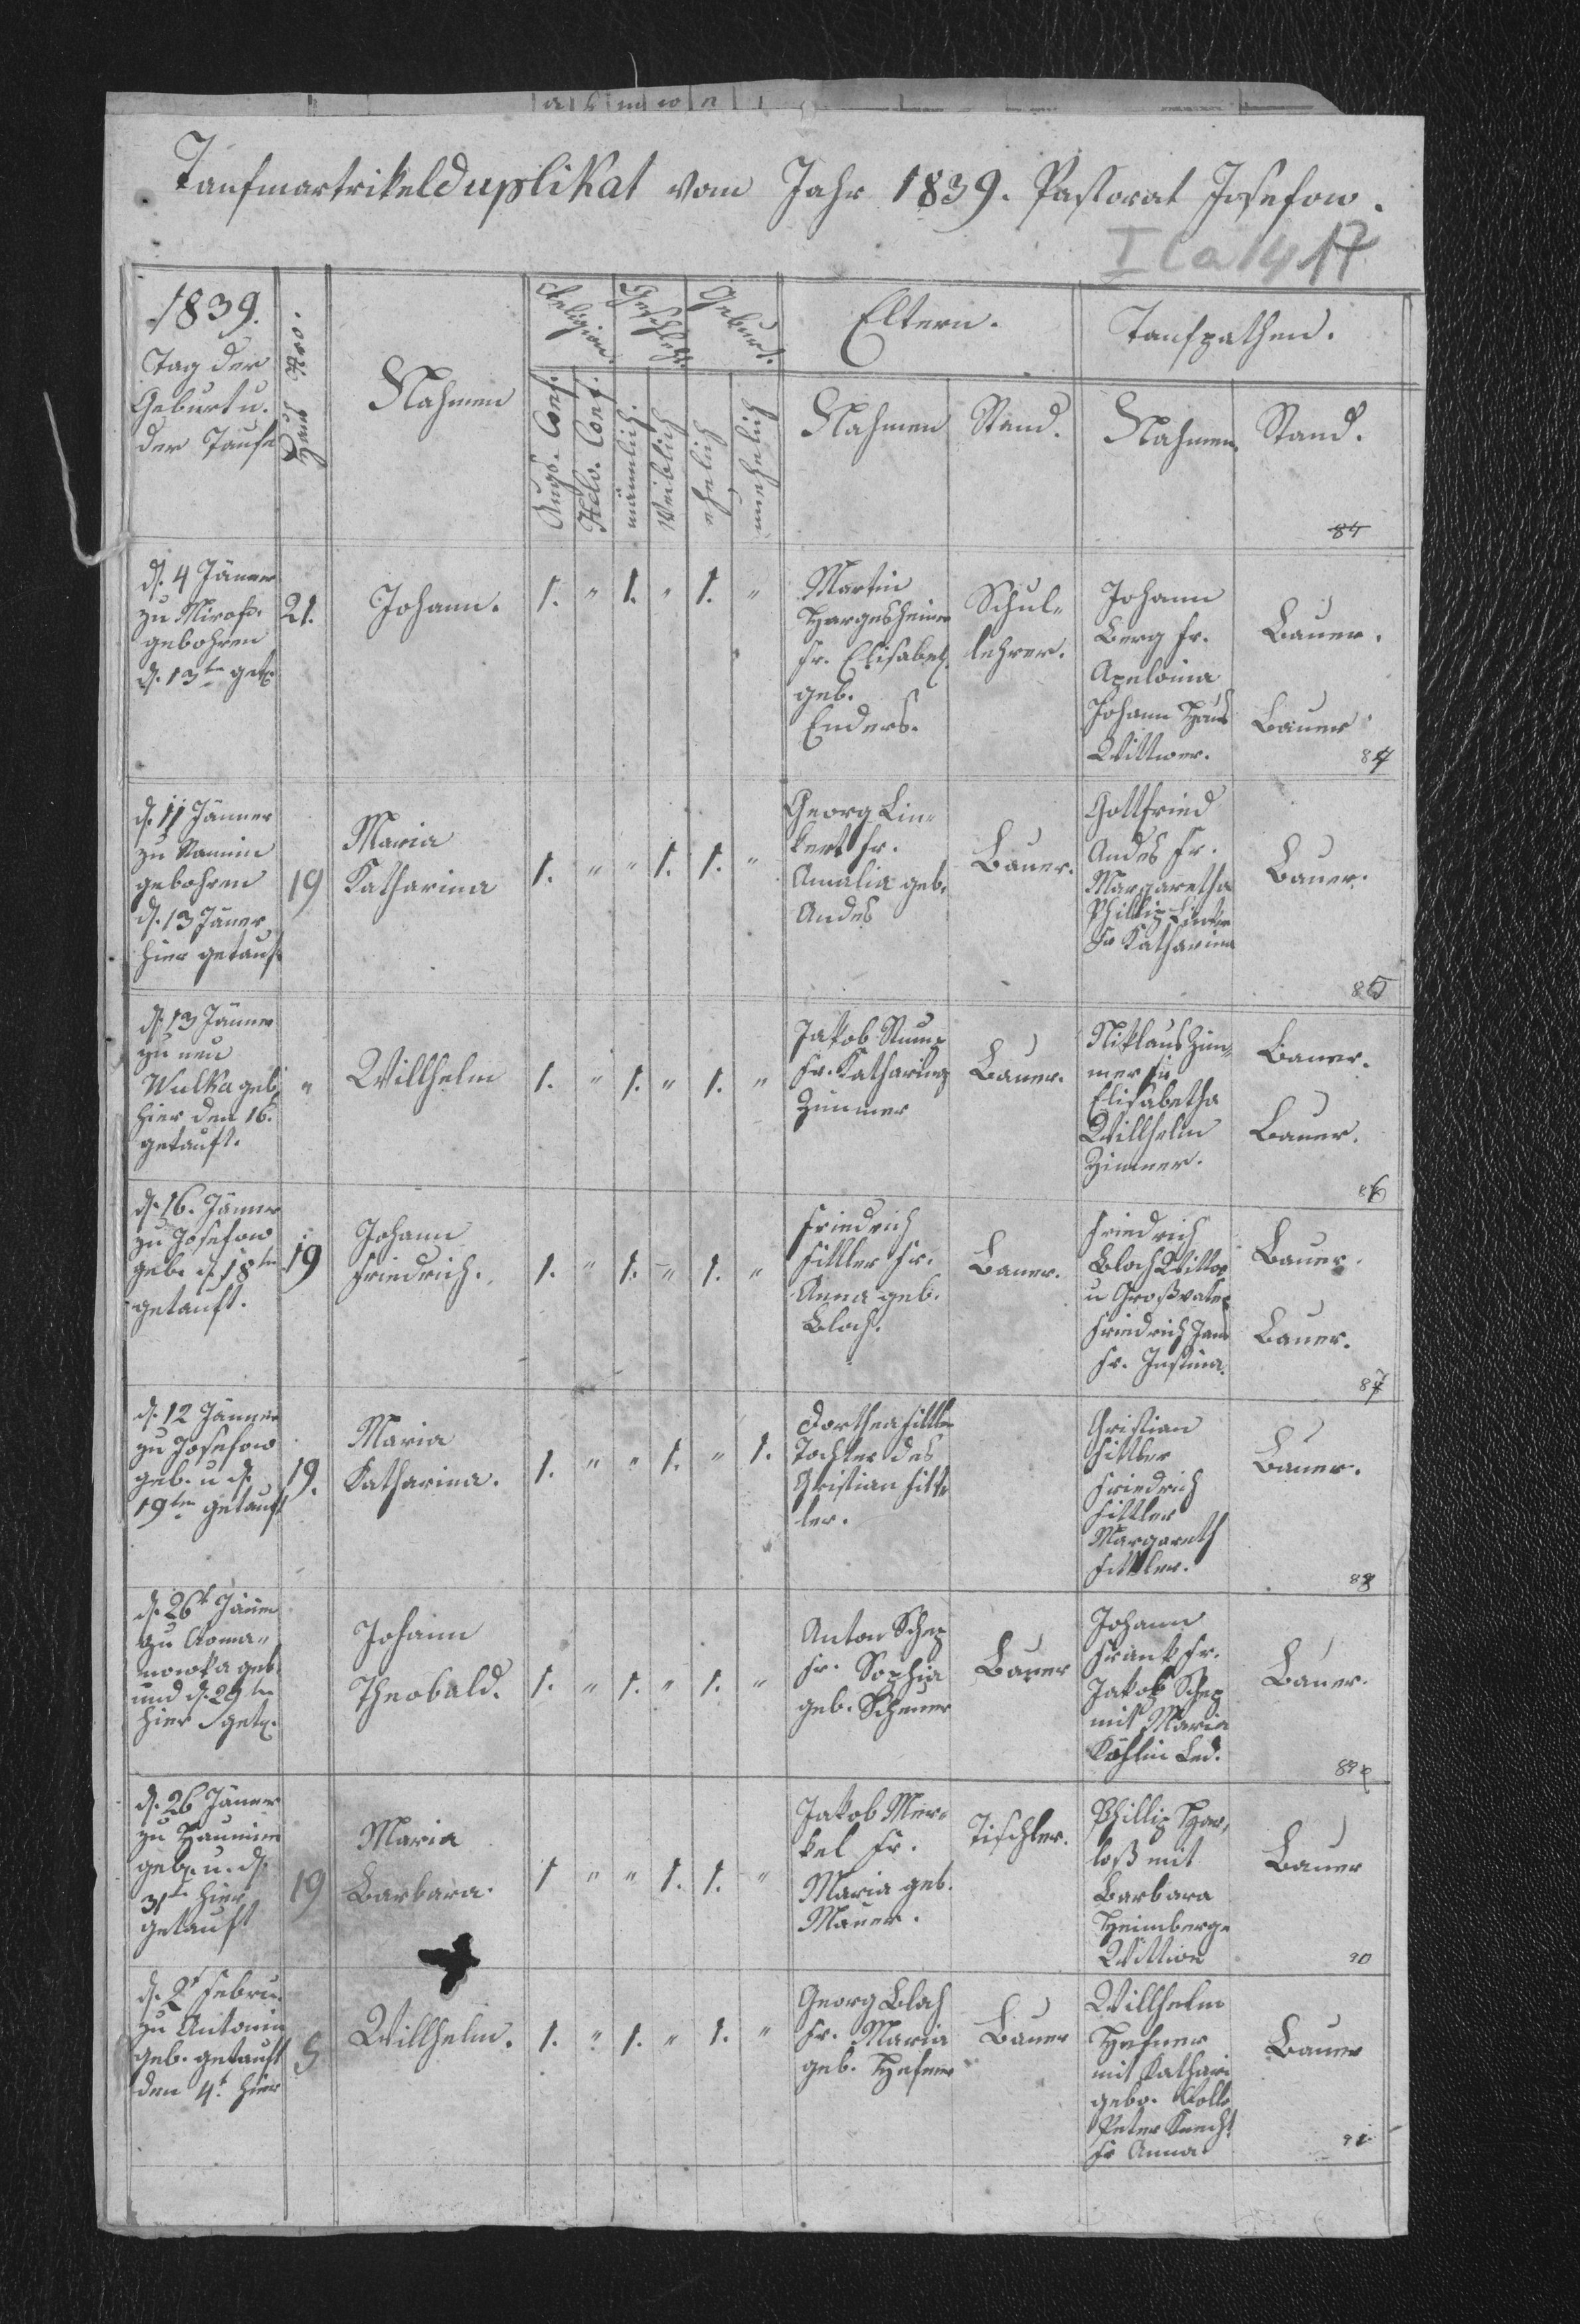 Taufmartrikelduplikat vom Jahr 1839. Pastorat Josefow.
I Ca 14 17
1839.
Tag der
Geburt u.
der Taufe
Haus Nro.
Nahmen
Religion.
Augs. Conf.
Helv. Conf.
Geschlecht.
männlich.
Weiblich
Geburt.
ehelich
unehelich
Eltern.
Nahmen
Stand.
Taufpathen.
Nahmen.
Stand.
84
d. 4 Jänner
zu
gebohren
d. 13ten get.
21.
Johann.
1. " 1. " 1. "
Martin
Hargesheimer
fr. Elisabeth
geb.
Enders.
Schul-
lehrer.
Johann
Berg fr.
Apelonia
Johann Haus
Wittwer.
Bauer.
Bauer
84
d. 11 Jänner
zu
gebohren
d. 13 Jäner
hier getauft
19
Maria
Katharina
1. " " 1. 1. "
Georg Lin-
kert fr.
Amalia geb.
Andes
Bauer.
Gottfried
Andes fr.
Margaretha
Phillip
Fr Katharina
Bauer.
85
d. 13 Jänner
zu neu
Wulka geb.
hier den 16t.
getauft.
"
Willhelm
1. " 1. " 1. "
Jakob
fr. Katharina
Zimmer
Bauer.
Niklaus Zim-
mer
Elisabetha
Willhelm
Zimmer.
Bauer.
Bauer.
86
d. 16. Jänner
zu Josefow
geb. d. 18ten
getauft.
19
Johann
Friedrich.
1. " 1. " 1. "
Friedrich
Sittler Fr.
Anna geb.
Bloch.
Bauer.
Friedrich
Bloch Wittwer
u Großvater
Friedrich
Fr. Justina.
Bauer.
Bauer.
87
d. 12 Jänner
zu Josefow
geb. u d.
19ten getauft
19.
Maria
Katharina.
1. " " 1. " 1.
Dorthea Sittler
Tochter des
Christian Sitt-
ler.
Christian
Sittler
Friedrich
Sittler
Margareth
Sittler.
Bauer.
88
d. 26t Jänner
zu Roma-
nowka geb.
und d. 29ten
hier get.
Johann
Theobald.
1. " 1. " 1. "
Anton
Fr. Sophia
geb.
Bauer
Johann
Frank fr.
Jakob
mit Maria
Led.
Bauer.
89
d. 26 Jäner
zu
geb. u. d.
31ten hier
getauft
19
Maria
Barbara.
1 " " 1. 1. "
Jakob Mer-
kel Fr.
Maria geb.
Mauer.
Tischler.
Phillip Har-
loß mit
Barbara
Heimberger
Wittwe
Bauer
90
d. 2t Febru.
zu Antonin
geb. getauft
den 4t. hier
5
Willhelm.
1. " 1. " 1. "
Georg Bloch
Fr. Maria
geb. Hefner
Bauer
Willhelm
Hefner
mit Kathari
gebo.
Peter Knecht
Fr Anna
Bauer
91